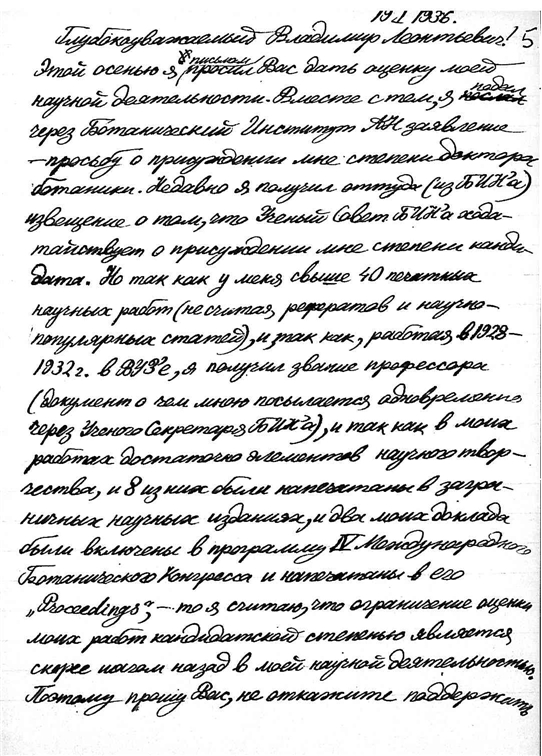 19 I 1936.
Глубокоуважаемый Владимир Леонтьевич! 5
письмом
Этой осенью я просил Вас дать оценку моей
подал
научной деятельности. Вместе с тем, я послал
через Ботанический Институт АН заявление
—просьбу о присуждении мне степени доктора
ботаники. Недавно я получил оттуда (из БИН'а)
извещение о том, что Ученый Совет БИН'а хода-
тайствует о присуждении мне степени канди-
дата. Но так как у меня свыше 40 печатных
научных работ (не считая рефератов и научно-
популярных статей), и так как, работая в 1928-
1932 г. в ВУЗ'е, я получил звание профессора
(документ о чем мною посылается одновременно
через Ученого Секретаря БИН'а), и так как в моих
работах достаточно элементов научного твор-
чества, и 8 из них были напечатаны в загра-
ничных научных изданиях, и два моих доклада
были включены в программу IV Международного
Ботанического Конгресса и напечатаны в его
„Proceedings", — то я считаю, что ограничение оценки
моих работ кандидатской степенью является
скорее шагом назад в моей научной деятельностью.
Поэтому прошу Вас, не откажите поддержать